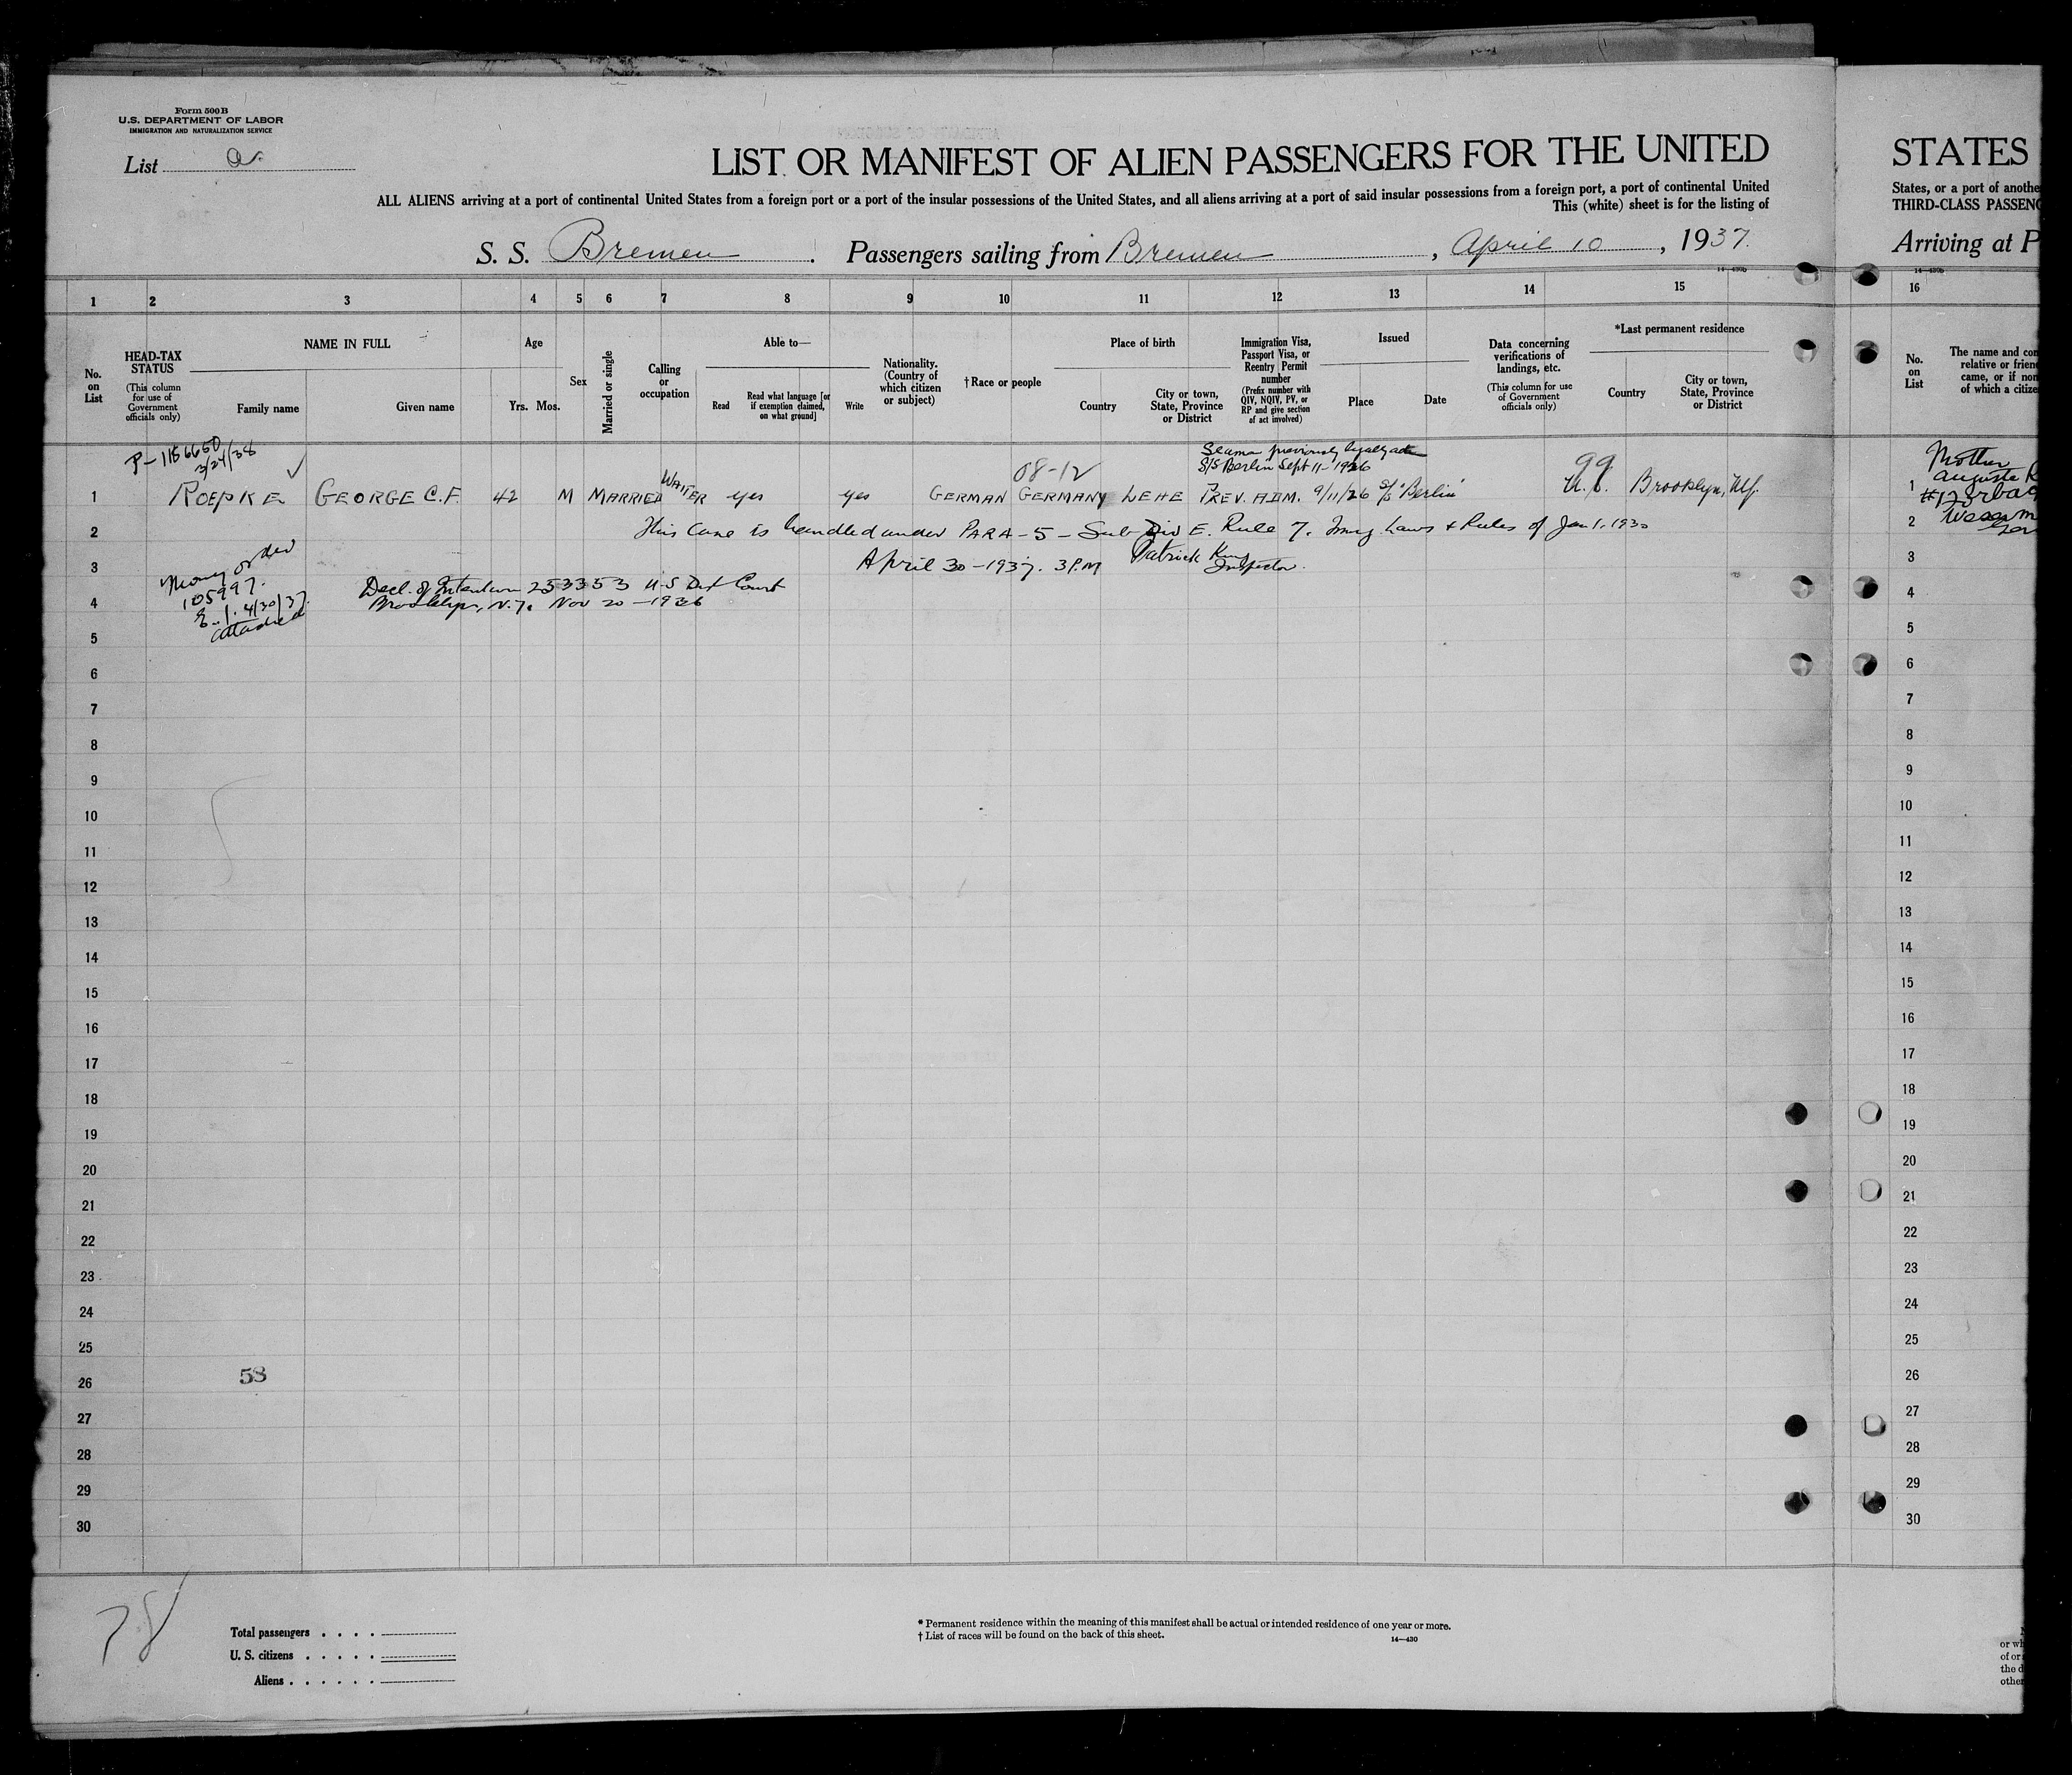 Form 500 B
U.S. DEPARTMENT OF LABOR
IMMIGRATION AND NATURALIZATION SERVICE
List
LIST OR MANIFEST OF ALIEN PASSENGERS FOR THE UNITED
ALL ALIENS arriving at a port of continental United States from a foreign port or a port of the insular possessions of the United States, and all aliens arriving at a port of said insular possessions from a foreign port, a port of continental United
This (white) sheet is for the listing of
S. S. Bremen. Passengers sailing from Bremen, April 10, 1937.
14—430b
1 2 3 4 5 6 7 8 9 10 11 12 13 14 15
No. on List
HEAD-TAX STATUS
(This column for use of Government officials only)
NAME IN FULL
Family name
Given name
Age
Yrs. Mos.
Sex
Married or single
Calling or occupation
Able to—
Read
Read what language [or if exemption claimed, on what ground]
Write
Nationality. (Country of which citizen or subject)
† Race or people
Place of birth
Country
City or town, State, Province or District
Immigration Visa, Passport Visa, or Reentry Permit number
(Prefix number with QIV, NQIV, PV, or RP and give section of act involved)
Issued
Place
Date
Data concerning verifications of landings, etc.
(This column for use of Government officials only)
*Last permanent residence
Country
City or town, State, Province or District
P-1156650
3/24/38
08-12
Seaman previously legally
S/S Berlin Sept 11-1926
99
1 ROEPKE GEORGE C.F. 42 M MARRIED WAITER yes yes GERMAN GERMANY LEHE PREV. ADM. 9/11/26 S/S "Berlin" U.S. Brooklyn, NY.
2 This case is handled under PARA-5-Sub Div E. Rule 7. Immg Laws & Rules of Jan 1, 1930
3 April 30-1937. 3 P.M Patrick King
Inspector.
Money order
105997.
4/30/37.
attached
4 Decl. of Intention 253353 U-S Dist Court
Brooklyn, N.Y. Nov 20-1936
5
6
7
8
9
10
11
12
13
14
15
16
17
18
19
20
21
22
23
24
25
26
58
27
28
29
30
78
Total passengers
U. S. citizens
Aliens
* Permanent residence within the meaning of this manifest shall be actual or intended residence of one year or more.
† List of races will be found on the back of this sheet.
14—430
STATES
States, or a port of anothe
THIRD-CLASS PASSENG
Arriving at P
14—430b
16
No. on List
The name and con
relative or frien
came, or if non
of which a citize
Mother
1 Auguste R
2
3
4
5
6
7
8
9
10
11
12
13
14
15
16
17
18
19
20
21
22
23
24
25
26
27
28
29
30
or wh
of or
the d
other